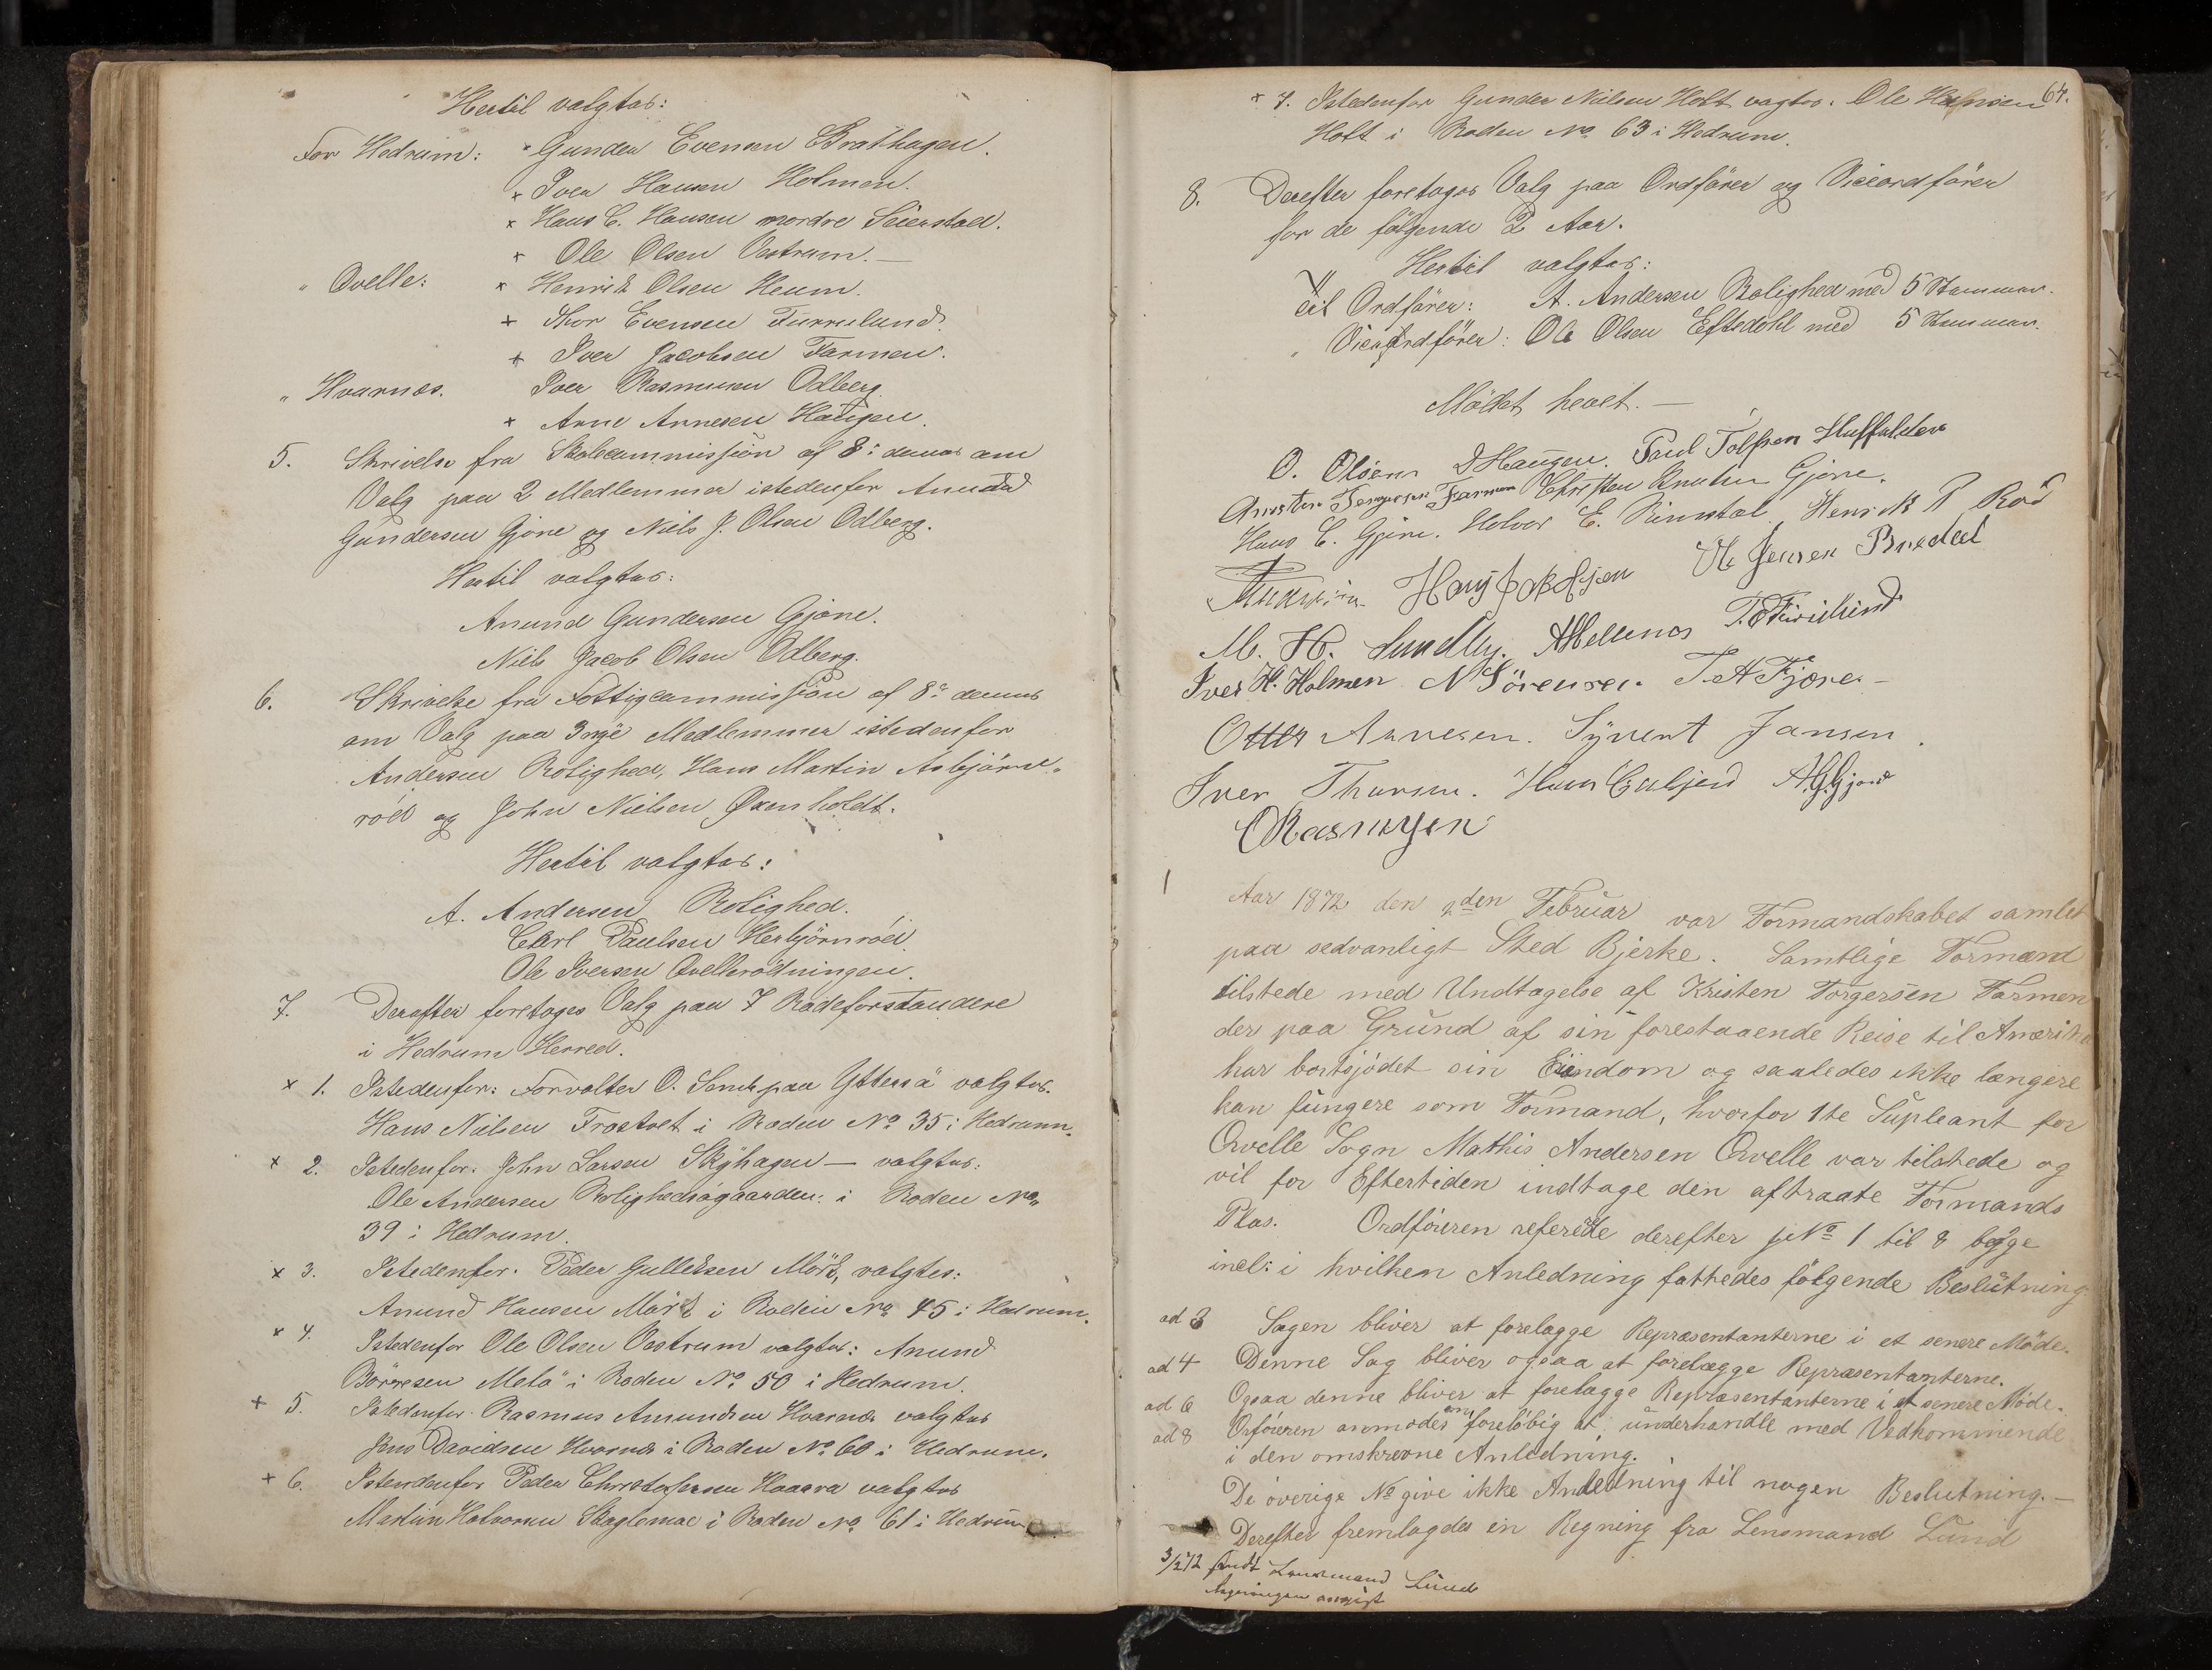 Hertil valgtes:
For Hedrum: Gunder Evensen Brathagen.
x Iver Hansen Holmen.
x Hans C. Hansen nordre Seierstad.
x Ole Olsen Vestrum. —
" Qvelle: x Henrik Olsen Heum.
+ Thor Evensen Furrulund.
+ Iver Jacobsen Farmen.
" Hvarnæs. Iver Rasmusen Odberg
x Arne Arnesen Haugen.
5. Skrivelse fra Skolecommissjon af 8: dennes om
Valg paa 2 Medlemmer istedenfor Anund
Gundersen Gjone og Niels J. Olsen Odberg.
Hertil valgtes:
Anund Gundersen Gjone.
Niels Jacob Olsen Odberg.
6. Skrivelse fra Fattigcommissjon af 8de dennes
om Valg paa 3 nye Medlemmer istedenfor
Andersen Rolighed, Hans Martin Asbjörns-
röd og John Nielsen Øxenholdt.
Hertil valgtes:
A. Andersen Rolighed.
Carl Paulsen Herbjörnröd.
Ole Iversen Qvellerödningen.
7. Derefter foretoges Valg paa 7 Rodeforstandere
i Hedrum Herred.
x 1. Istedenfor: Forvalter O. paa Yttersö valgtes.
Hans Nielsen Trostvet i Roden No 35 i Hedrum.
x 2. Istedenfor: John Larsen Skyhagen — valgtes:
Ole Andersen i Roden No
39 i Hedrum.
x 3. Istedenfor. Peder Gulliksen Mörk, valgtes:
Anund Hansen Mörk i Roden No 45 i Hedrum.
x 4. Istedenfor Ole Olsen Vestrum valgtes: Anund
Börresen Melö i Roden No 50 i Hedrum.
+ 5. Istedenfor Rasmus Amundsen Hvarnæs valgtes
Jens Davidsen Hvarnæs i Roden No 60 i Hedrum.
+ 6. Istendenfor Peder Christofersen Haavra valgtes
Martin Halvorsen i Roden No 61 i Hedrum
64.
x 7. Istedenfor Gunder Nielsen Holt vagtes. Ole Hansen
Holt i Roden No 63 i Hedrum.
8. Derefter foretoges Valg paa Ordförer og Viceordförer
for de fölgende 2 Aar.
Hertil valgtes:
til Ordförer: A. Andersen Rolighed med 5 Stemmer.
" Viceordförer: Ole Olsen Eftedahl med 5 Stemmer.
Mödet hevet. —
O. Olsen D Haugen. Paul Tolfsen
Torgersen Farmen Christen Knutsen Gjone.
Hans C. Gjone. Holver E. Rimstal Henrik P Röd
Hans Jakobsen Ole Jensen
M. H. Sundby.
Iver H. Holmen N Sörensen T. A Fjöre —
Otter Arnesen. Syvert Jansen.
Iver Thorsen. Hans
Rasmusen
Aar 1872 den 2den Februar var Formandskabet samlet
paa sedvanligt Sted Bjerke. Samtlige Formænd
tilstede med Undtagelse af Kristen Torgersen Farmen
der paa Grund af sin forestaaende Reise til Amerika
har bortsjödet sin Eiendom og saaledes ikke længere
kan fungere som Formand, hvorfor 1te Supleant for
Qvelle Sogn Mathis Andersen Qvelle var tilstede og
vil for Eftertiden indtage den aftraate Formands
Plas. Ordföreren refererte derefter No 1 til 8 begge
incl: i hvilken Anledning fattedes fölgende Beslutning
ad 3 Sagen bliver at forelægge Repræsentanterne i et senere Möde.
ad 4 Denne Sag bliver ogsaa at forelægge Repræsentanterne.
ad 6 Ogsaa denne bliver at forelægge Repræsentanterne i et senere Möde.
ad 8 Orföreren anmodes om forelöbig at underhandle med Vedkommende
i den omskrevne Anledning.
De överige No give ikke Anledning til nogen Beslutning. —
Derefter fremlagdes en Regning fra Lensmand Lund
3/2 72 sendt Lensmand Lund
Regningen